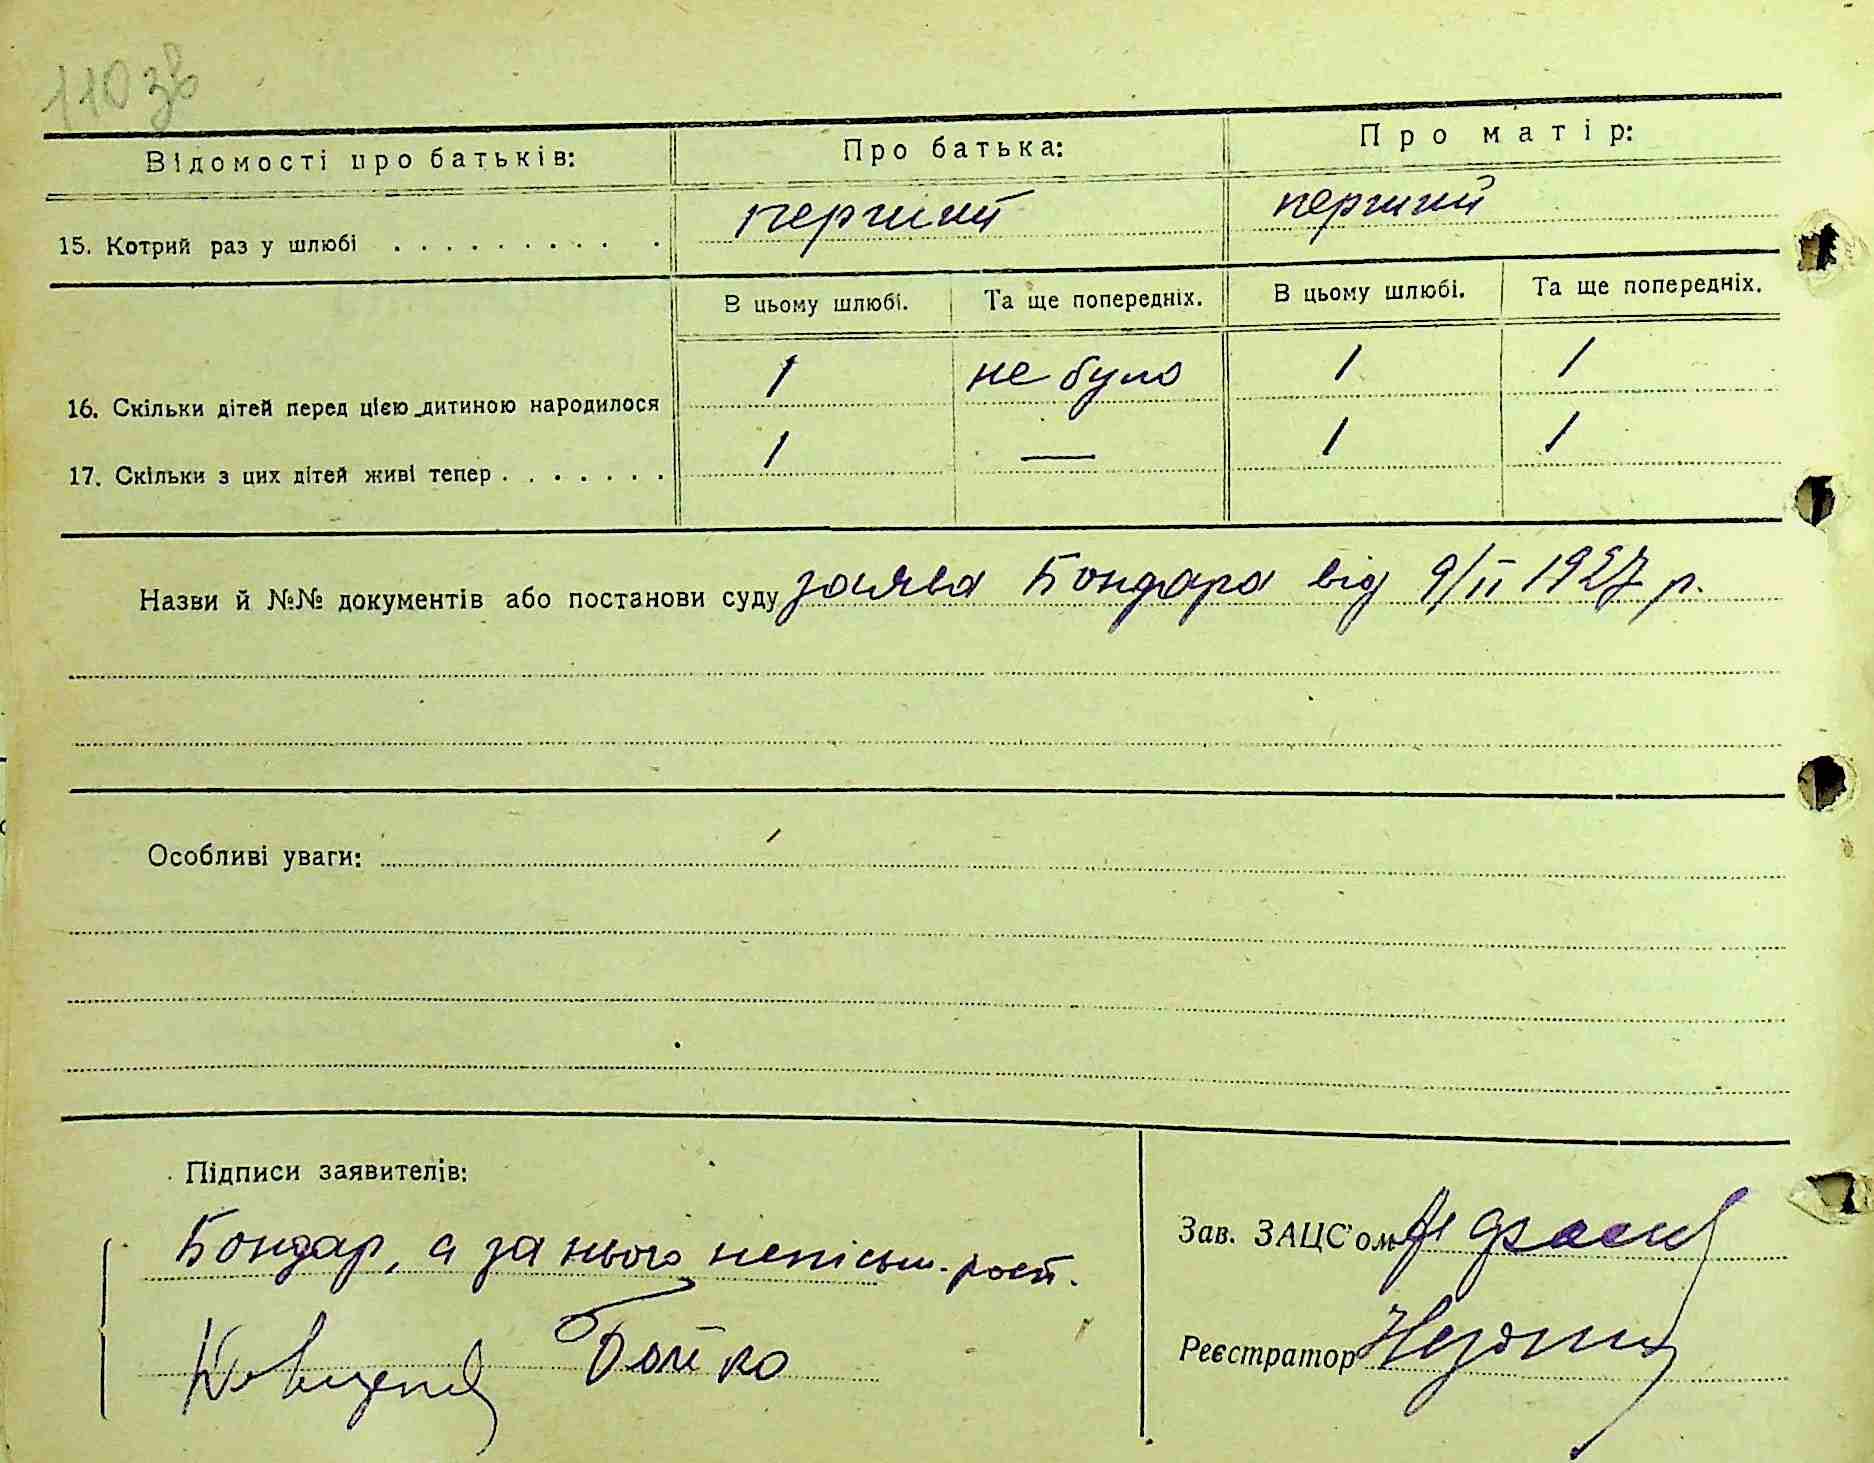 110 зв
Відомості про батьків: Про батька: Про матір:
15. Котрий раз у шлюбі . . . . . . . . . . перший перший
В цьому шлюбі. Та ще попередніх. В цьому шлюбі. Та ще попередніх.
16. Скільки дітей перед цією дитиною народилося 1 не було 1 1
17. Скільки з цих дітей живі тепер . . . . . . . 1 — 1 1
Назви й №№ документів або постанови суду заява Бондара від 9/II 1927 р.
Особливі уваги:
Підписи заявителів:
Бондар, а за нього непісьм. рост.
Бойко
Зав. ЗАЦС'ом
Реєстратор